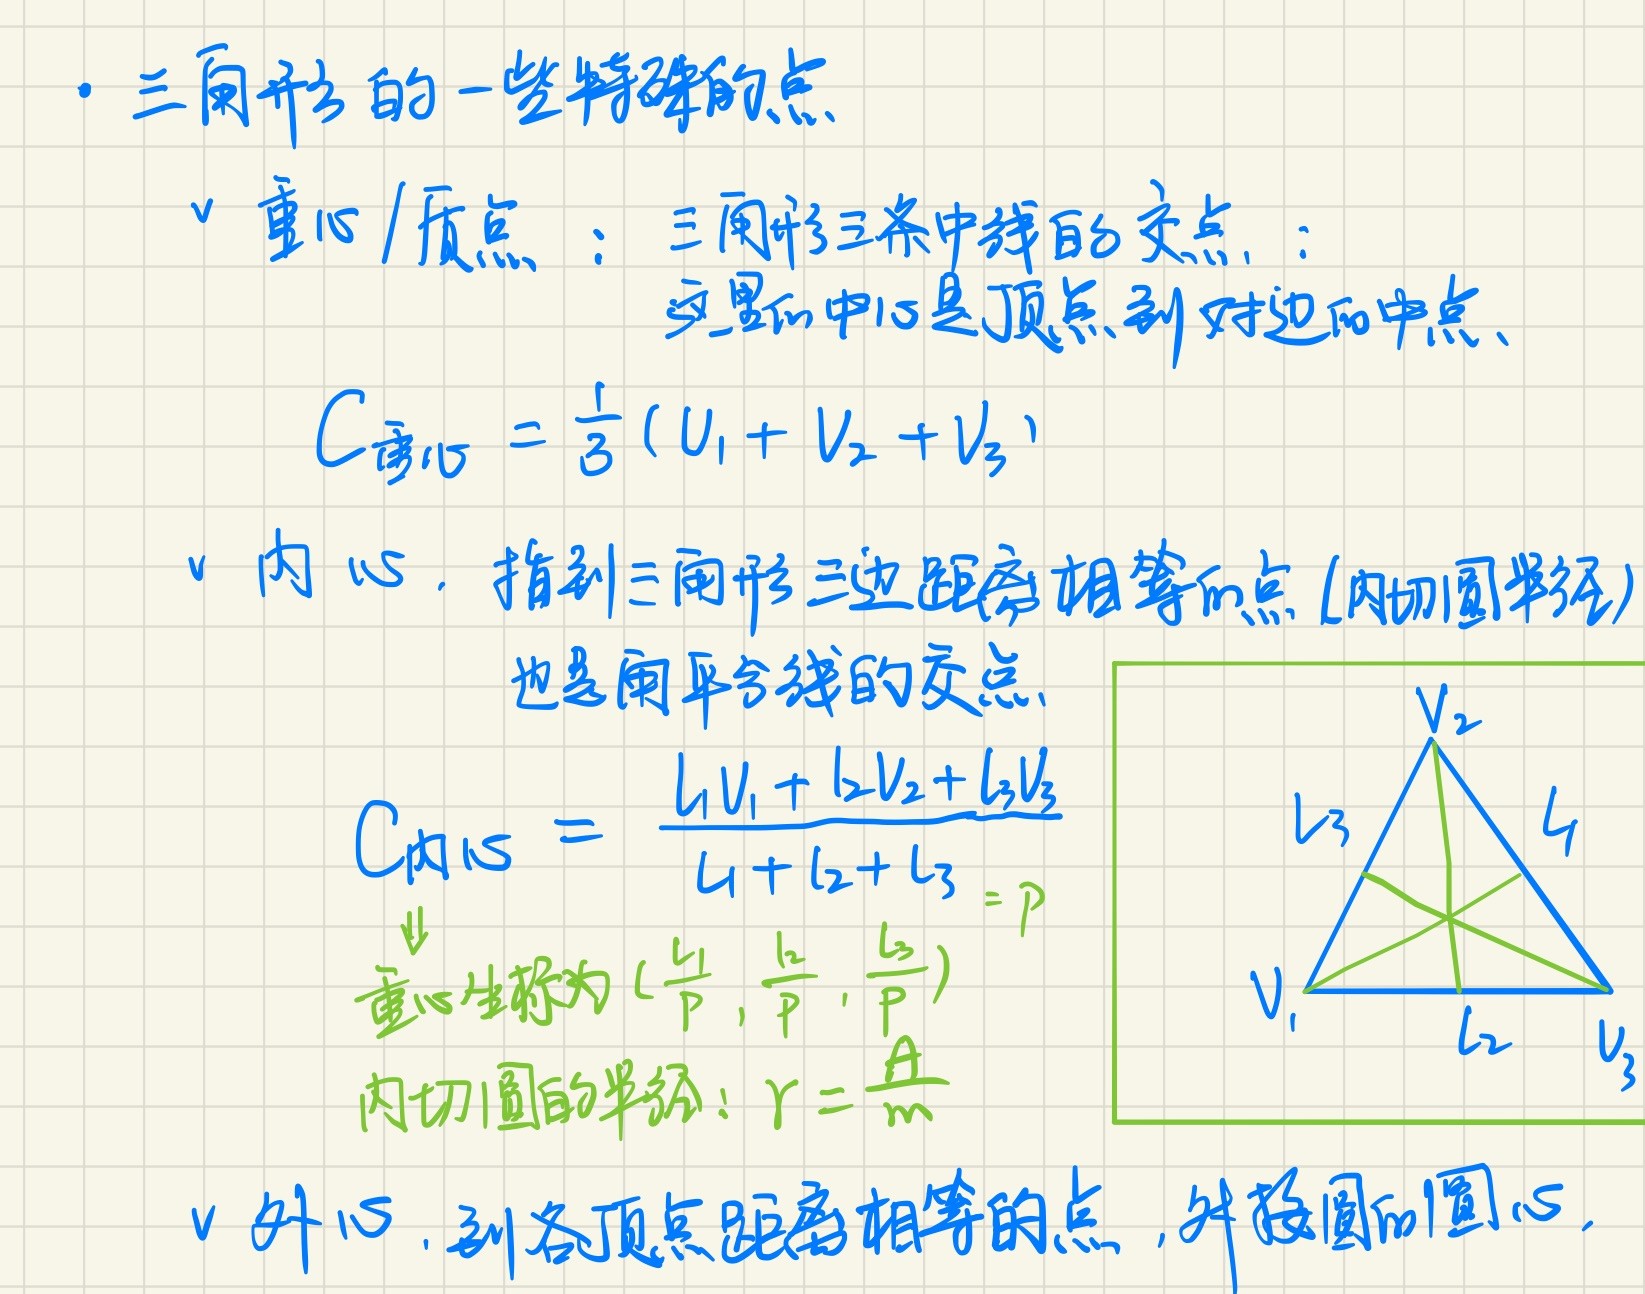 · 三角形的一些特殊的点
✓ 重心/质点： 三角形三条中线的交点：
这里的中心是顶点到对边的中点、
C重心 = 1/3 (V1 + V2 + V3)
✓ 内心. 指到三角形三边距离相等的点 (内切圆半径)
也是角平分线的交点
C内心 = (L1V1 + L2V2 + L3V3) / (L1 + L2 + L3) = P
⇓
重心坐标为 (L1/P, L2/P, L3/P)
内切圆的半径: r = A/m
V2
L3
L1
V1
L2
V3
✓ 外心. 到各顶点距离相等的点, 外接圆的圆心.